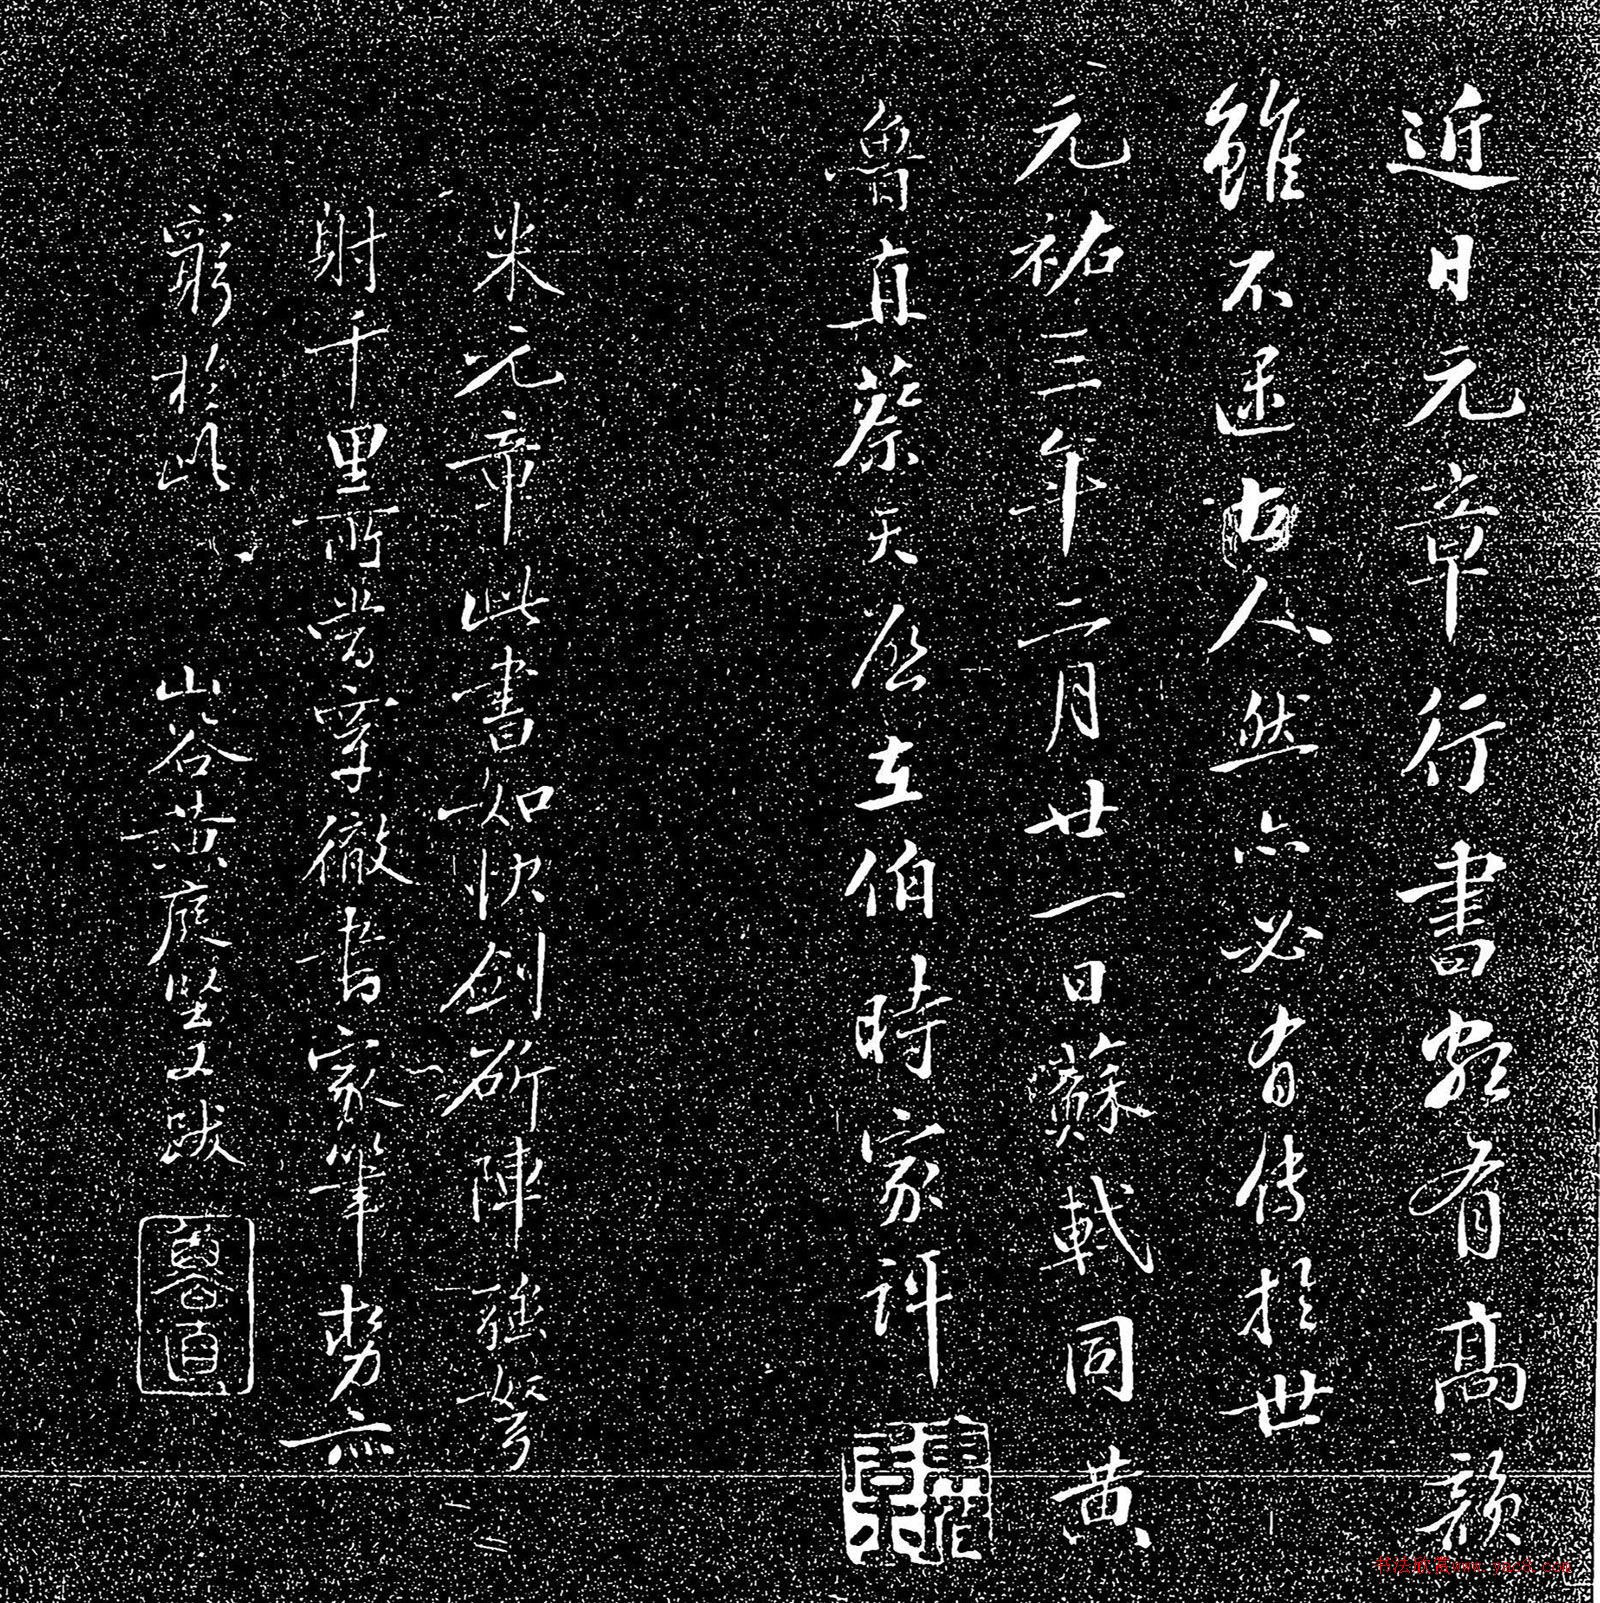 近日元章行書頗有高韻
雖不逮古人然亦必有傳於世
元祐三年二月廿一日蘇軾同黃
魯直蔡天啓在伯時家評
米元章此書如快劍斫陣強弩
射千里所當穿徹書家筆勢亦
窮於此
山谷黃庭堅又跋
魯直
书法欣赏www.yac8.com